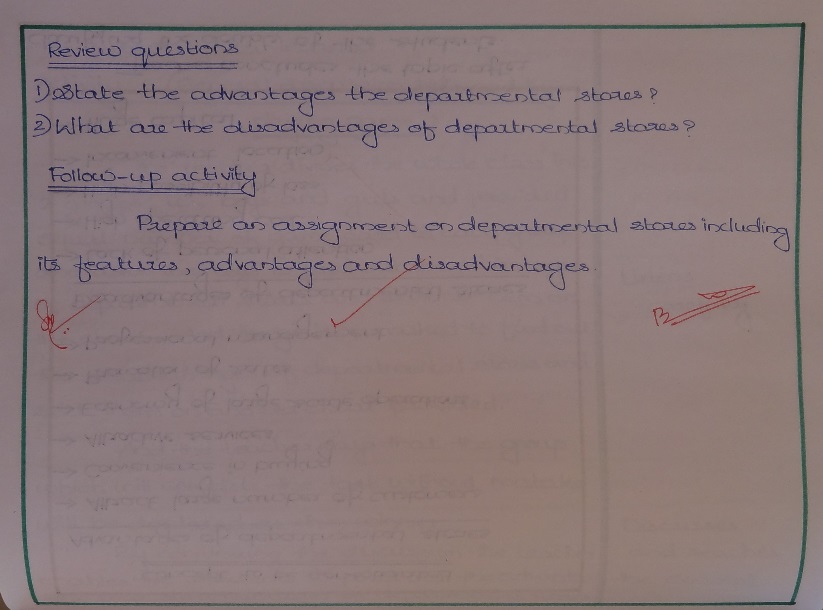 Review questions
1) State the advantages the departmental stores?
2) What are the disadvantages of departmental stores?
Follow-up activity
Prepare an assignment on departmental stores including
its features, advantages and disadvantages.